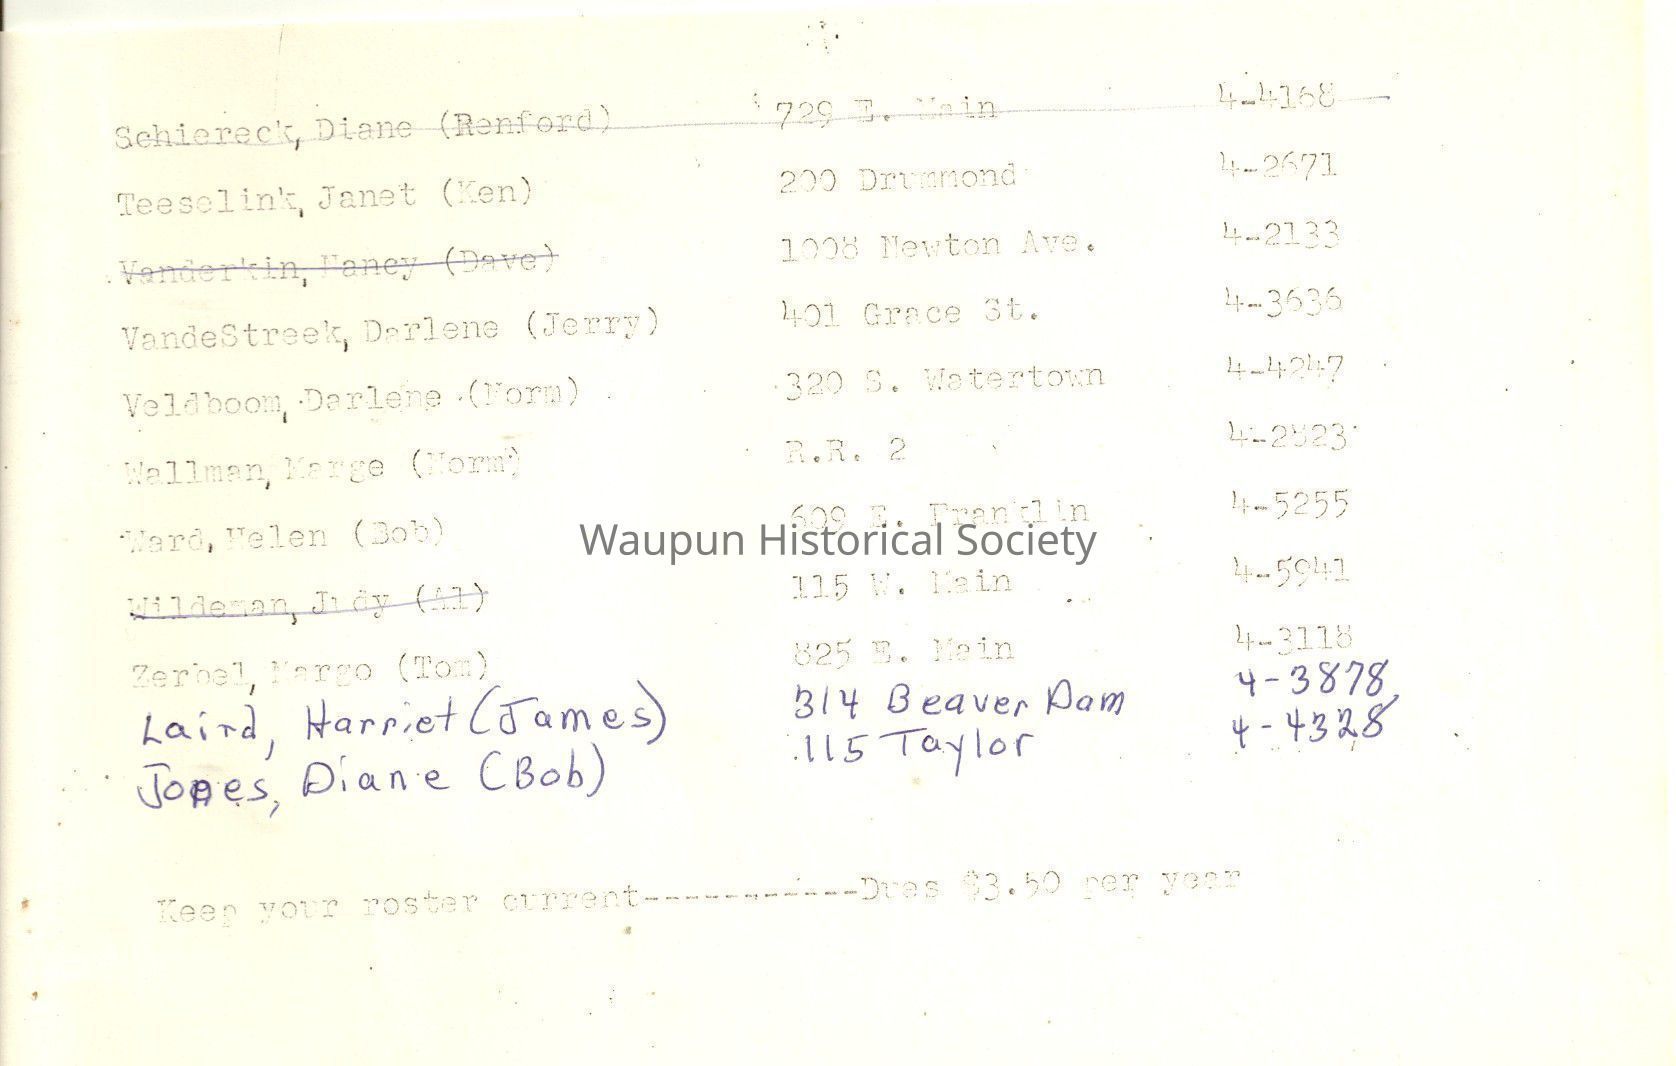 Schiereck, Diane (Renford) 729 E. Main 4-4168
Teeselink, Janet (Ken) 200 Drummond 4-2671
Vanderkin, Nancy (Dave) 1008 Newton Ave. 4-2133
VandeStreek, Darlene (Jerry) 401 Grace St. 4-3636
Veldboom, Darlene (Norm) 320 S. Watertown 4-4247
Wallman, Marge (Norm) R.R. 2 4-2823
Ward, Helen (Bob) 609 E. Franklin 4-5255
Waupun Historical Society
Wildeman, Judy (Al) 115 W. Main 4-5941
Zerbel, Margo (Tom) 825 E. Main 4-3118
Laird, Harriet (James) 314 Beaver Dam 4-3878
Jones, Diane (Bob) 115 Taylor 4-4328
Keep your roster current------------Dues $3.50 per year